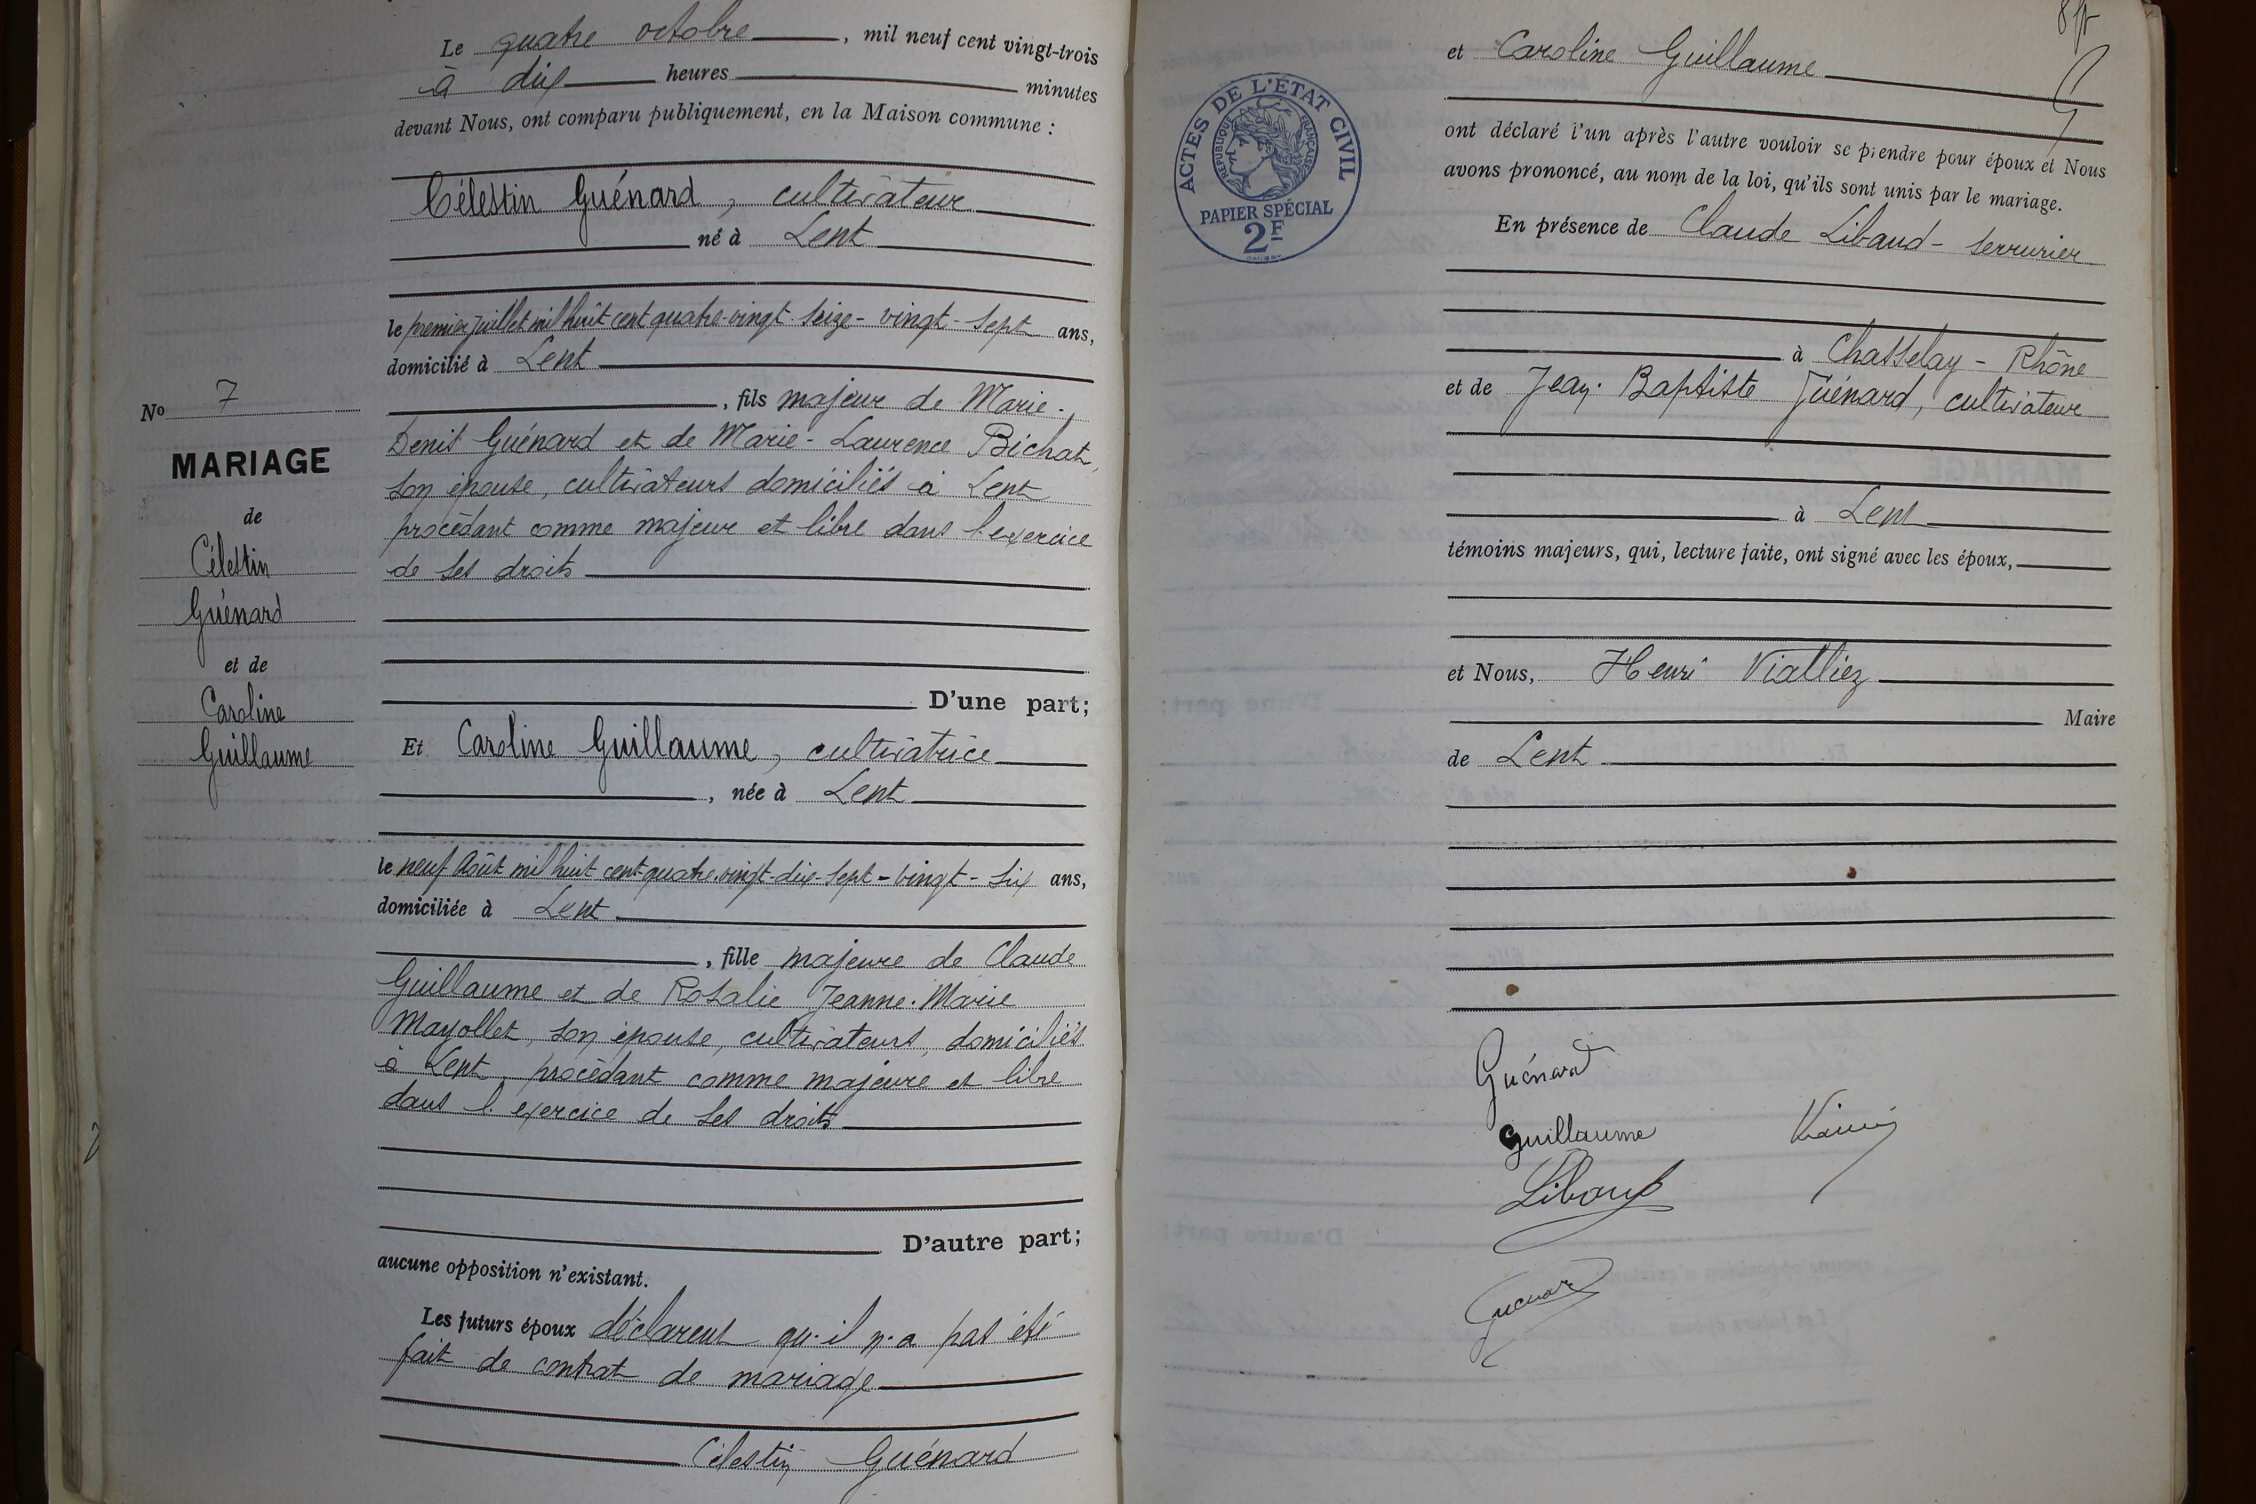 Le quatre octobre, mil neuf cent vingt-trois
à dix heures minutes
devant Nous, ont comparu publiquement, en la Maison commune :
Célestin Guénard, cultivateur
né à Lent
le premier Juillet mil huit cent quatre-vingt-seize - vingt-sept ans,
domicilié à Lent
, fils majeur de Marie-
Denis Guénard et de Marie-Laurence Bichat,
son épouse, cultivateurs domiciliés à Lent
procédant comme majeur et libre dans l'exercice
de ses droits
D'une part;
Et Caroline Guillaume, cultivatrice
, née à Lent
le neuf Août mil huit cent-quatre-vingt-dix-sept - vingt-six ans,
domiciliée à Lent
, fille majeure de Claude
Guillaume et de Rosalie Jeanne-Marie
Mayollet, son épouse, cultivateurs, domiciliés
à Lent, procédant comme majeure et libre
dans l'exercice de ses droits
D'autre part;
aucune opposition n'existant.
Les futurs époux déclarent qu'il n'a pas été
fait de contrat de mariage
Célestin Guénard
No 7
MARIAGE
de
Célestin
Guénard
et de
Caroline
Guillaume
et Caroline Guillaume
ont déclaré l'un après l'autre vouloir se prendre pour époux et Nous
avons prononcé, au nom de la loi, qu'ils sont unis par le mariage.
En présence de Claude Libaud - serrurier
à Chasselay - Rhône
et de Jean-Baptiste Guénard, cultivateur
à Lent
témoins majeurs, qui, lecture faite, ont signé avec les époux,
et Nous, Henri Vialliez
Maire
de Lent
Guénard
Guillaume
Libaud
Guenard
ACTES DE L'ÉTAT CIVIL
RÉPUBLIQUE FRANÇAISE
PAPIER SPÉCIAL
2F